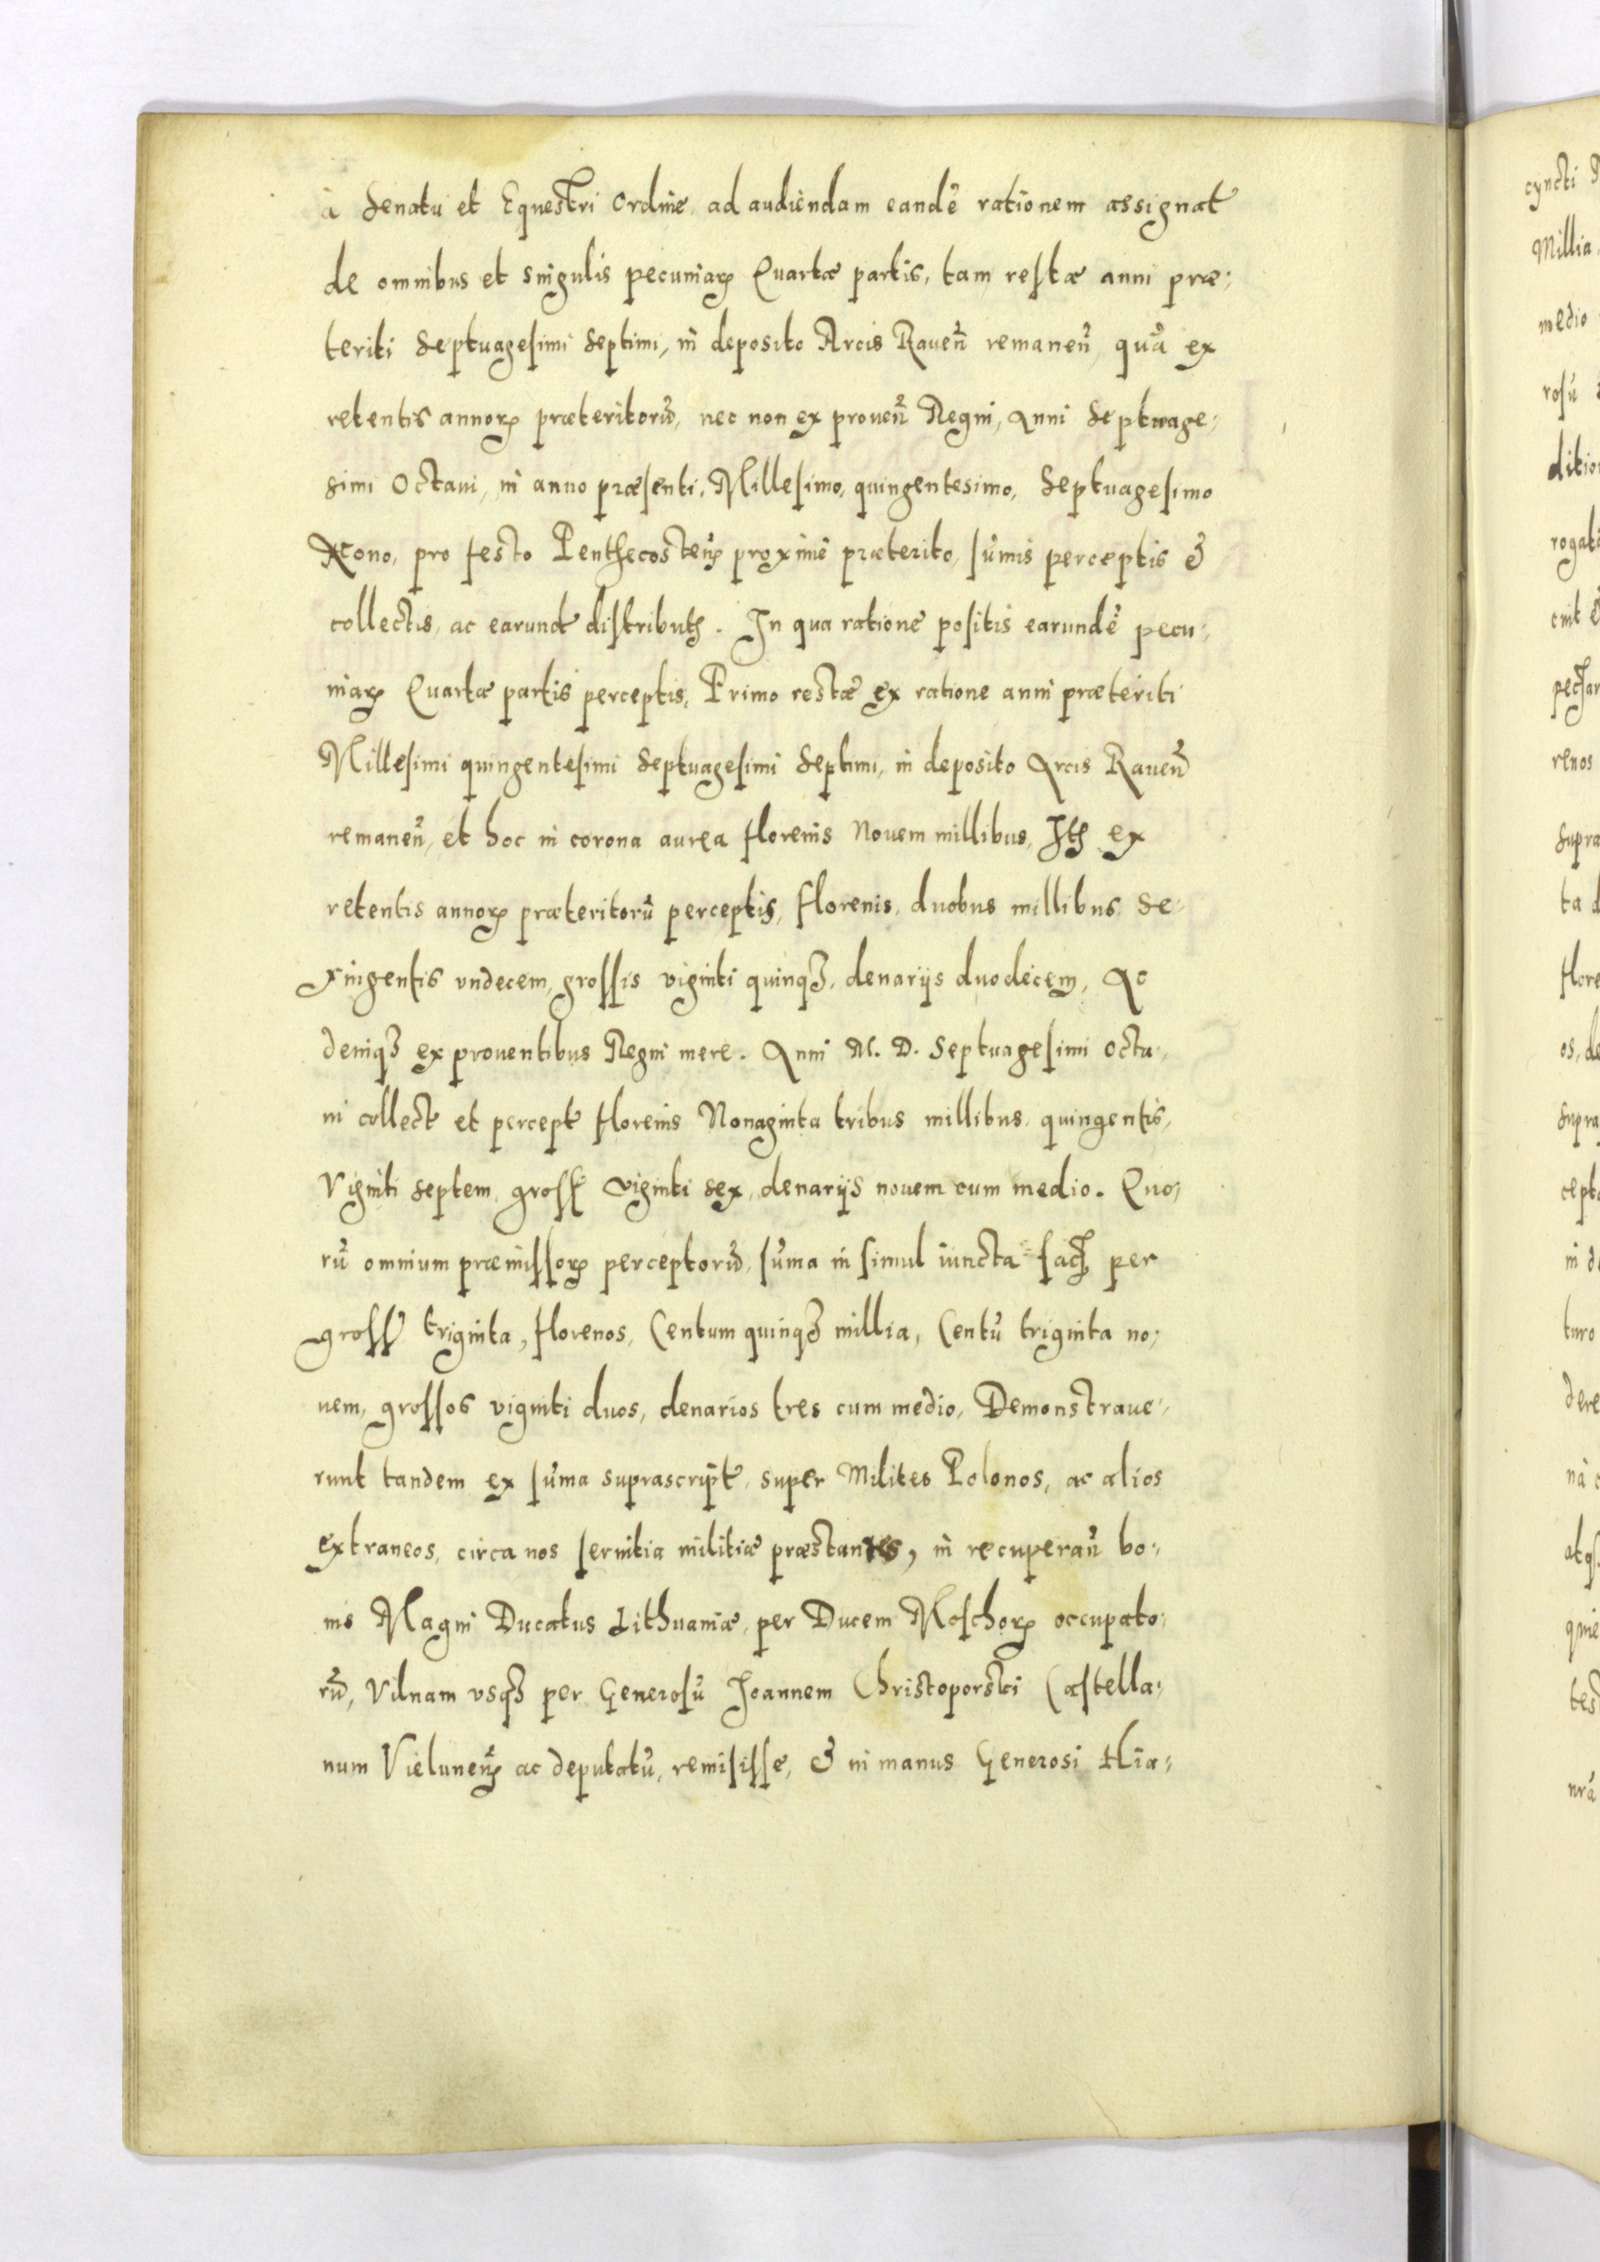 à Senatu et Equestri Ordine, ad audiendam eandē rationem assignat
de omnibus et singulis pecuniarꝝ Quartæ partis, tam restæ anni præ:
teriti Septuagesimi Septimi, in deposito Arcis Raueñ remaneñ, quā ex
retentis annorꝝ præteritorū, nec non ex proueñ Regni, Anni Septuage:
simi Octaui, in anno præsenti, Millesimo, quingentesimo, Septuagesimo
Nono, pro festo Penthecosteñ proximè præterito, sūmis perceptis &
collectis, ac earund distributis. In qua ratione positis earundē pecu:
niarꝝ Quartæ partis perceptis, Primo restæ ex ratione anni præteriti
Millesimi quingentesimi Septuagesimi Septimi, in deposito Arcis Raueñ
remaneñ, et hoc in corona aurea florenis Nouem millibus, Itē ex
retentis annorꝝ præteritorū perceptis, florenis, duobus millibus Se:
xingentis vndecem, grossis viginti quinqȝ, denarijs duodecem, Ac
deniqȝ ex prouentibus Regni mere. Anni M. D. Septuagesimi octa:
ui collect et percept florenis Nonaginta tribus millibus quingentis,
Viginti septem, gross viginti sex, denarijs nouem cum medio. Quo:
rū omnium præmissorꝝ perceptorū, sūma in simul iuncta facit per
gross triginta, florenos, Centum quinqȝ millia, Centū triginta no:
uem, grossos viginti duos, denarios tres cum medio, Demonstraue:
runt tandem ex sūma suprascript, super Milites Polonos, ac alios
extraneos, circa nos seruitia militiæ præstantes, in recuperañ bo:
nis Magni Ducatus Lithuaniæ, per Ducem Moschorꝝ occupato:
rū, Vilnam vsqȝ per Generosū Joannem Christoporski Castella:
num Vieluneñ ac deputatū, remisisse, & in manus Generosi Hia:
cyncti
Millia
medio
rosū
rogat
renos
supra
ta
dere
nrā